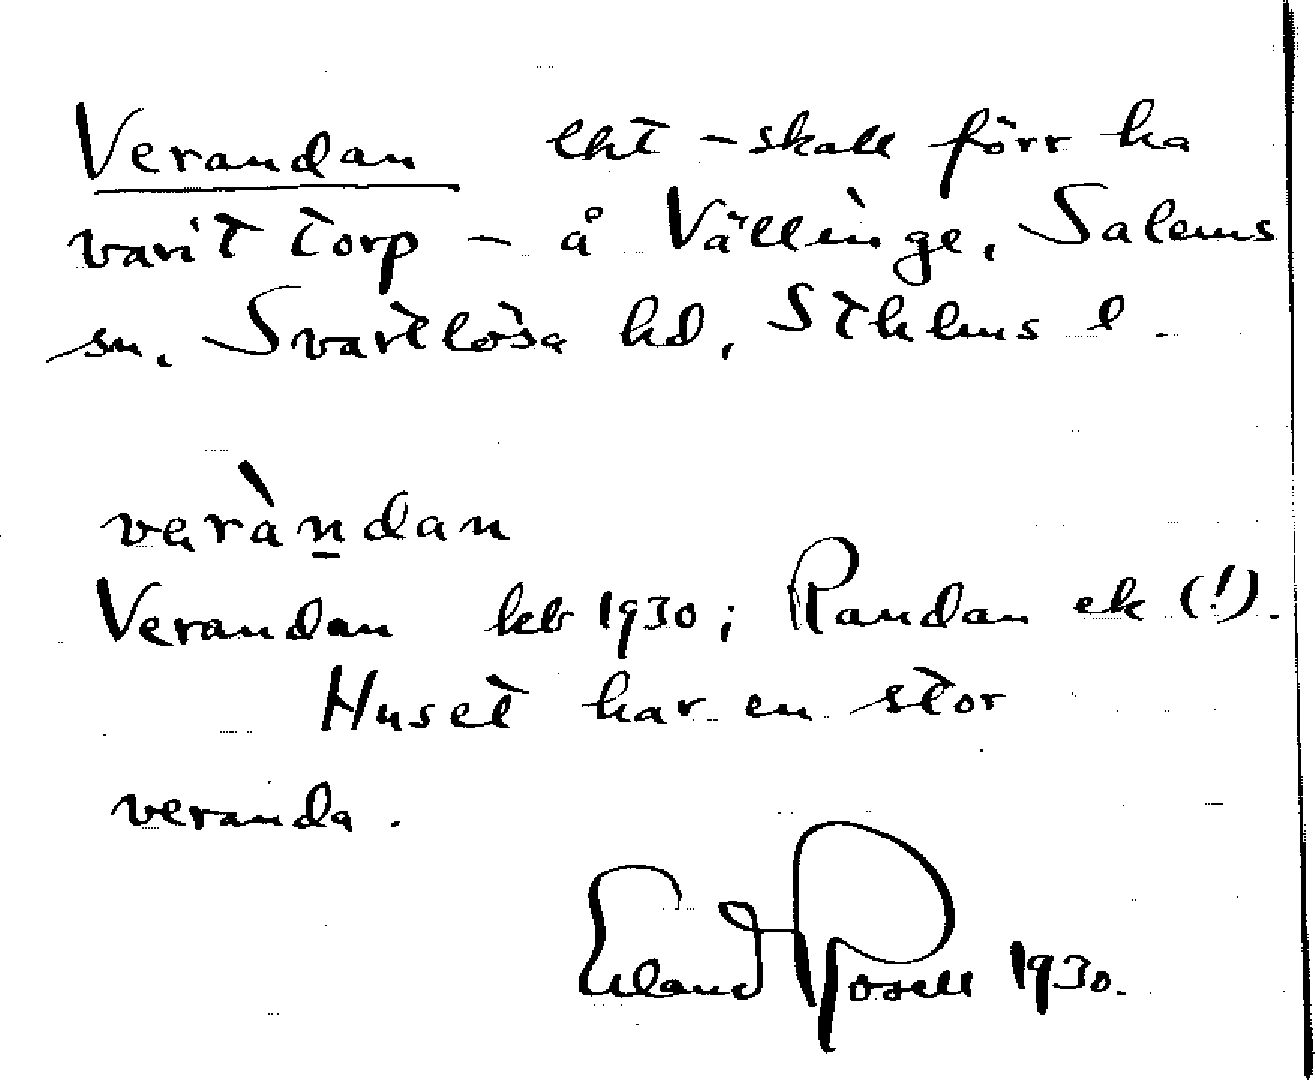 Verandan lht - skall förr ha
varit torp - å Vällinge, Salems
sn, Svartlösa hd, Sthlms l.
veràndan
Verandan kb 1930; Randan ek (!).
Huset har en stor
veranda.
Erland Rosell 1930.